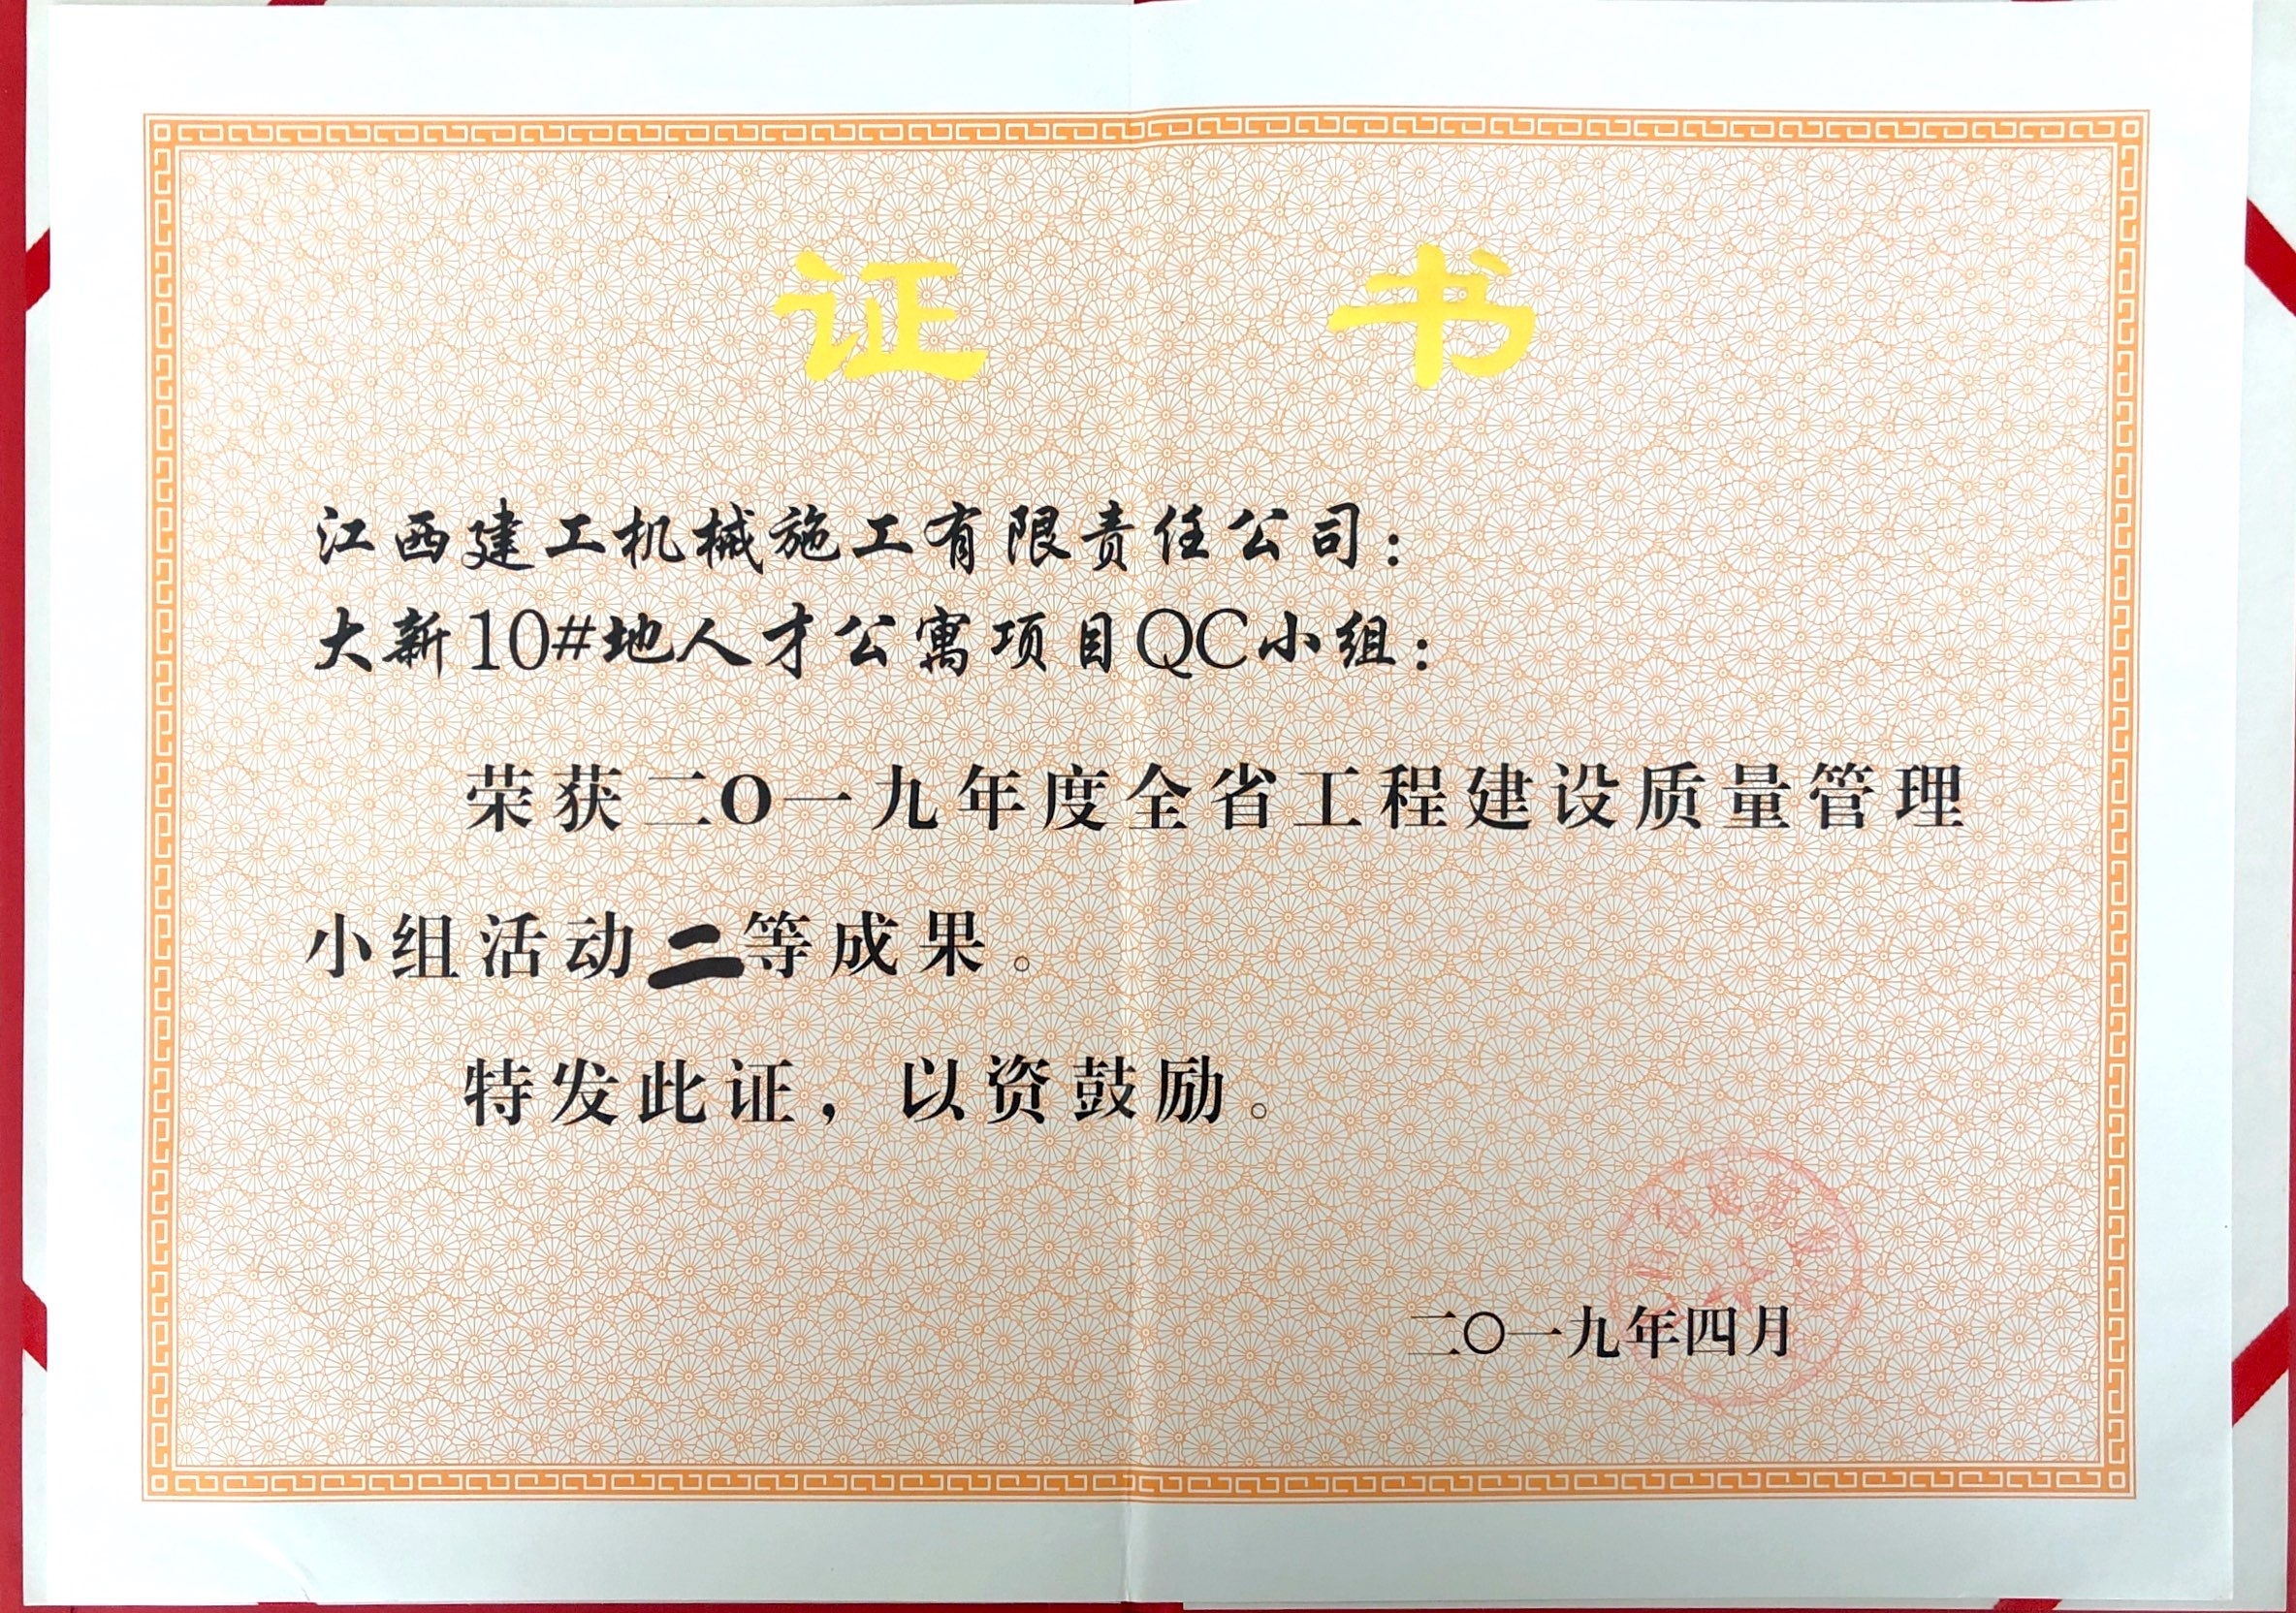 证书
江西建工机械施工有限责任公司：
大新10#地人才公寓项目QC小组：
荣获二O一九年度全省工程建设质量管理
小组活动二等成果。
特发此证，以资鼓励。
二〇一九年四月